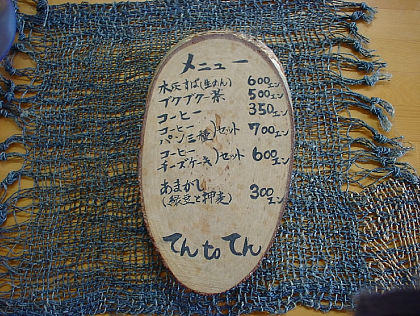 メニュー
木灰すば(生めん) 600エン
ブクブクー茶 500エン
コーヒー 350エン
コーヒー
パン三種)セット 700エン
コーヒー
チーズケーキ)セット 600エン
あまがし
(緑豆と押麦) 300エン
てん to てん